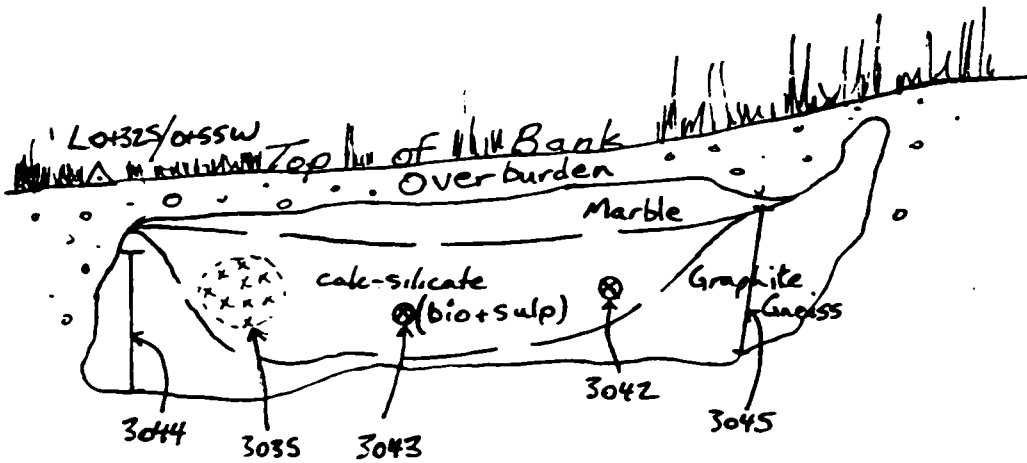 L0+32S/0+55W
Top of Bank
Overburden
Marble
calc-silicate
(bio+sulp)
Graphite
Gneiss
3044
3035
3043
3042
3045